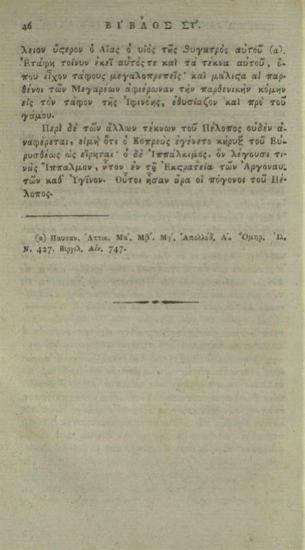 46 ΒΙΒΛΟΣ ΣΤ΄.
λειον ὕςερον ὁ Αἴας ὁ υἱὸς τῆς θυγατρὸς αὐτοῦ (α).
Ἐτάφη τοίνυν ἐκεῖ αὐτός τε καὶ τὰ τέκνα αὐτοῦ, ὅ-
που εἶχον τάφους μεγαλοπρεπεῖς· καὶ μάλιςα αἱ παρ-
θένοι τῶν Μεγαρέων ἀφιέρωναν τὴν παρθενικὴν κόμην
εἰς τὸν τάφον τῆς Ἰφινόης, ἐθυσίαζον καὶ πρὸ τοῦ
γάμου.
Περὶ δὲ τῶν ἄλλων τέκνων τοῦ Πέλοπος οὐδὲν ἀ-
ναφέρεται, εἰμὴ ὅτι ὁ Κοπρεὺς ἐγένετο κήρυξ τοῦ Εὐ-
ρυσθέως ὡς εἴρηται· ὁ δὲ Ἱππάλκιμος, ὃν λέγουσί τι-
νὰς Ἵππαλμον, ἦτον ἐν τῇ Ἐκςρατεία τῶν Ἀργοναυ-
τῶν καθ᾽ Ὑγῖνον. Οὗτοι ἦσαν ἄρα οἱ πόγονοι τοῦ Πέ-
λοπος.
(α) Παυσαν. Ἀττικ. Μα΄, Μβ΄. Μγ΄, Ἀπολλόδ, Α΄. Ὅμηρ. Ἰλ.
Ν. 427. Βιργιλ. Αἰν. 747.